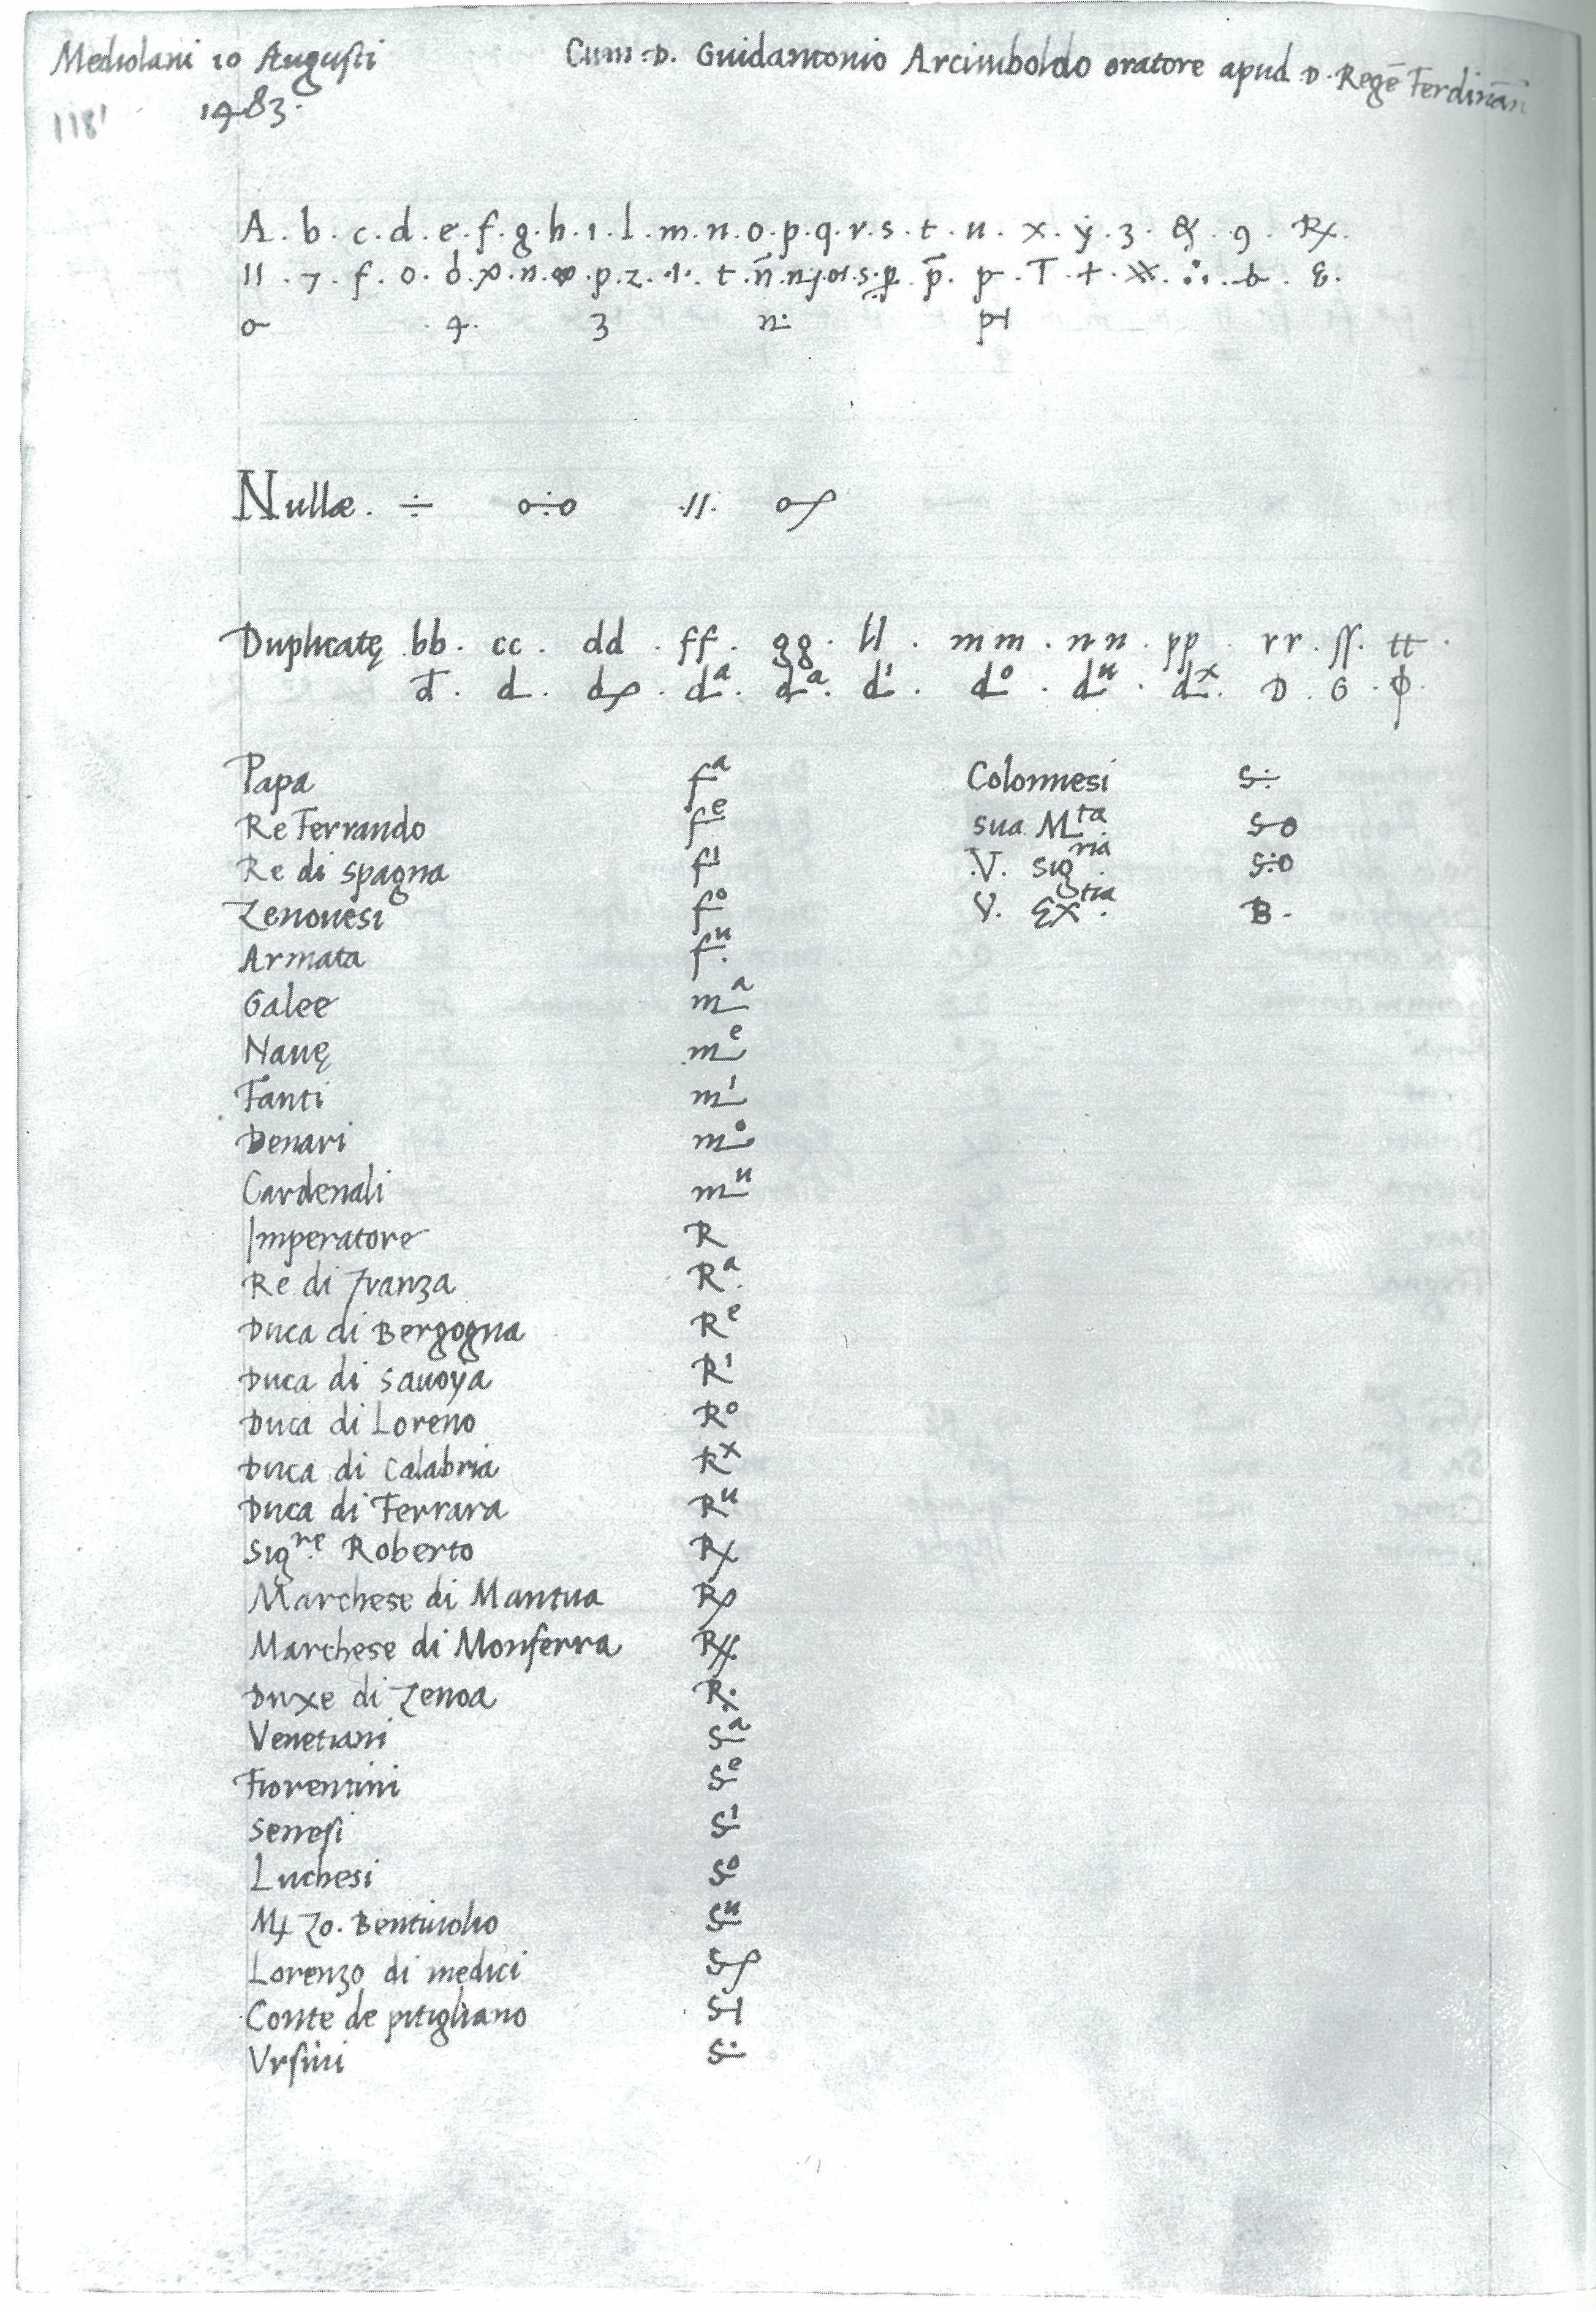 Mediolani 10 Augusti 1483.
Cum .D. Guidantonio Arcimboldo oratore apud D. Regē Ferdinān
118'
A . b . c . d . e . f . g . h . ı . l . m . n . o . p . q . r . s . t . u . x . ẏ . 3 . & . 9 . Rx .
3
Nullæ . ÷ o÷o .//.
Duplicatę bb . cc . dd . ff . gg . ll . mm . nn . pp . rr . ss . tt .
Papa fᵃ Colonnesi s÷
Re Ferrando fᵉ sua Mᵗᵃ so
Re di spagna f¹ .V. sigʳⁱᵃ s÷o
Zenouesi fᵒ V. Exᵗⁱᵃ B.
Armata fᵘ
Galee mᵃ
Nauę mᵉ
Fanti m¹
Denari mᵒ
Cardenali mᵘ
Imperatore R
Re di franza Rᵃ
Duca di Bergogna Rᵉ
Duca di Sauoya R¹
Duca di Loreno Rᵒ
Duca di Calabria Rˣ
Duca di Ferrara Rᵘ
Sigʳᵉ Roberto Rx
Marchese di Mantua
Marchese di Monferra
Duxe di Zenoa
Venetiani sᵃ
Fiorentini sᵉ
Senesi s¹
Luchesi sᵒ
Zo. Bentiuolio sᵘ
Lorenzo di medici
Conte de pitigliano
Vrsini